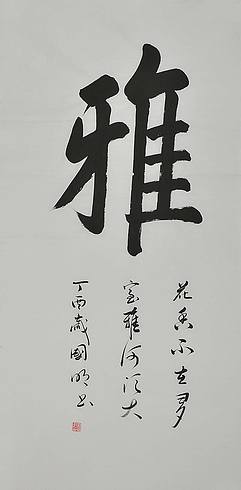 雅
花香不在多
室雅何须大
丁酉岁國明书